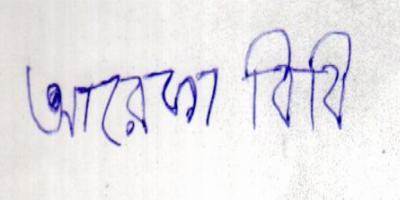 আরেফা বিবি